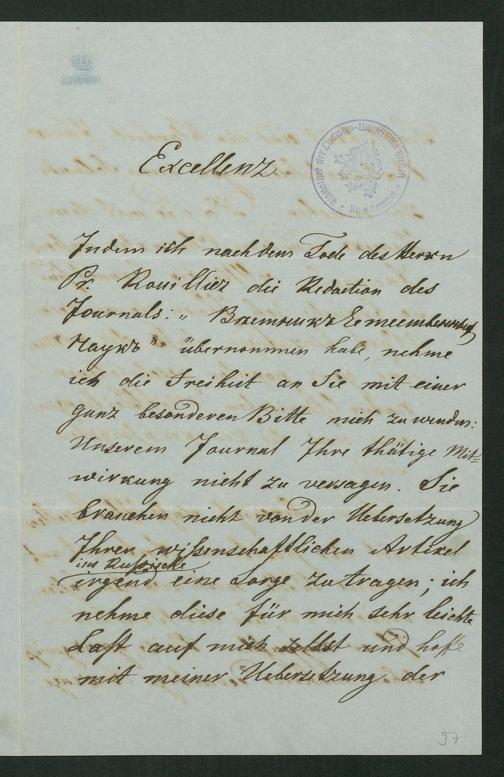 Bibliothek der Ludwigs-Universität Gießen
Excellenz
Indem ich nach dem Tode des Herrn
Pr. Rouillier die Redaction des
Journals: „ Вѣстникъ Естественныхъ
Наукъ" übernommen habe, nehme
ich die Freiheit an Sie mit einer
ganz besonderen Bitte mich zu wenden:
Unserem Journal Ihre thätige Mit=
wirkung nicht zu versagen. Sie
brauchen nicht von der Uebersetzung
Ihrer wißenschaftlichen Artikel
ins Rußische
irgend eine Sorge zu tragen; ich
nehme diese für mich sehr leichte
Last auf mich selbst und hoffe
mit meiner Uebersetzung der
97